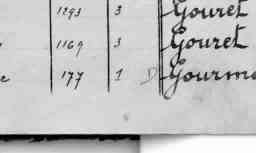 1293 3 Gouret
1169 3 Gouret
e 177 1 D Gourm